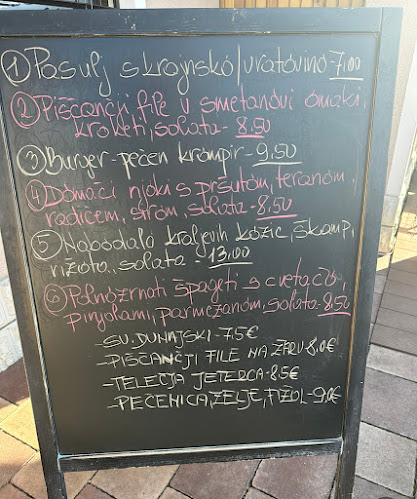 ① Pasulj s krajnsko/vratovino - 7,00
② Piščančji file v smetanovi omaki,
kroketi, solata - 8,50
③ Burger - pečen krompir - 9,50
④ Domači njoki s pršutom, teranom,
radičem, sirom, solata - 8,50
⑤ Nabodalo kraljevih kozic, škampi,
rižota, solata - 13,00
⑥ Polnozrnati špageti s cvetačo,
pinjolami, parmezanom, solata - 8,50
- SV. DUNAJSKI - 7,5€
- PIŠČANČJI FILE NA ŽARU - 8,0€
- TELEČJA JETERCA - 8,5€
- PEČENICA, ZELJE, FIŽOL - 9,0€